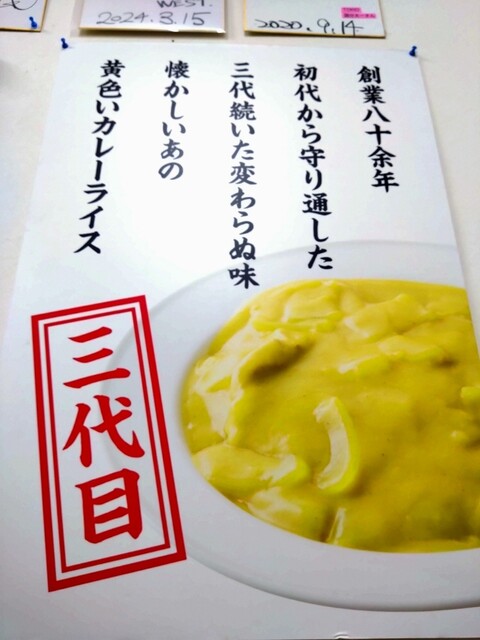 WEST.
2024.3.15
2020.9.14
創業八十余年
初代から守り通した
三代続いた変わらぬ味
懐かしいあの
黄色いカレーライス
三代目